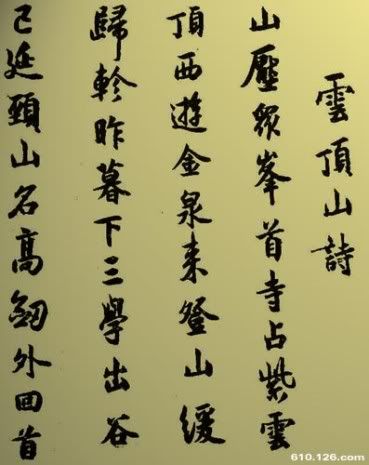 雲頂山詩
山壓眾峯首寺占紫雲
頂西遊金泉来登山緩
歸軫昨暮下三學出谷
已延頸山名高劒外回首
610.126.com